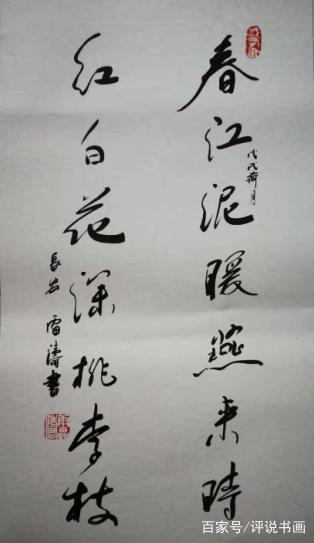 春江泥暖燕来時
戊戌荷月
红白花深桃李枝
長安雷濤書
百家号/评说书画